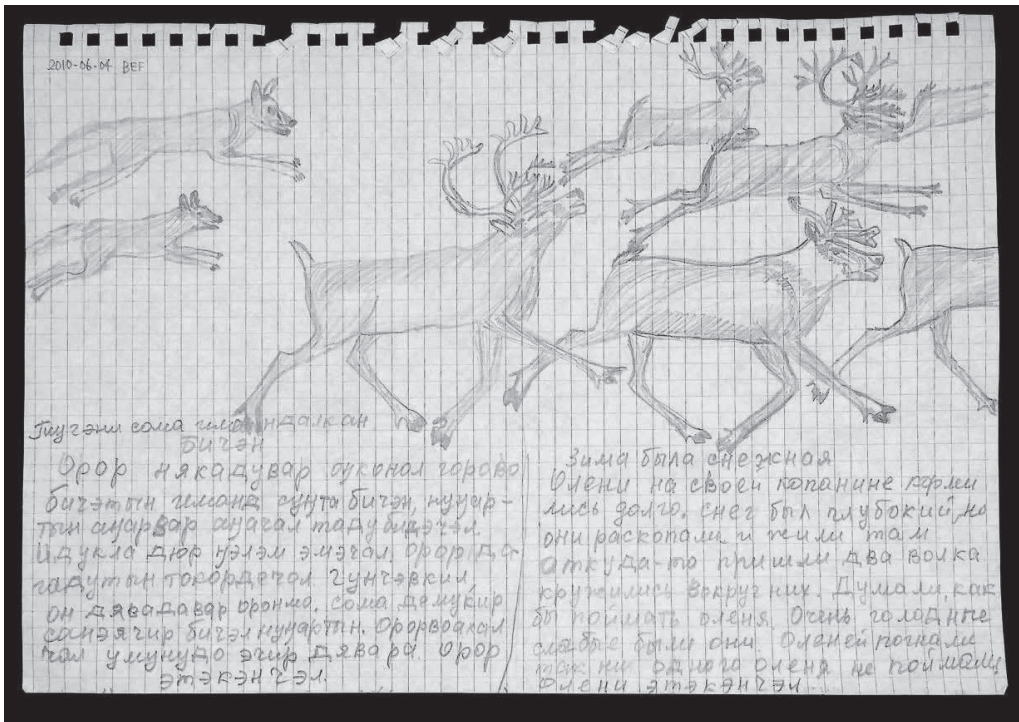 2010-06-04 BEF
Тугэни сома иманндалкан
бичэн
Орор някадувар оуконал горово
бичэтын иманд сунта бичэн, нуңар-
тын
тадубидэчэл
Идукла дюр эмэчал орор да-
гадутын токордечал Гунчэвкил,
он дявадавар оронмо. Сома демукир
бичэл нуңартын.
чал умунудо эчир дявара. Орор
этэкэнчэл.
Зима была снежная
Олени на своей копанине корми
лись долго. снег был глубокий, но
они раскопали и жили там
аткуда-то пришли два волка
кружились вокруг них. Думали, как
бы поймать оленя. Очень голодные
слабые были они. Оленей погнали
так ни одного оленя не поймали,
Олени этэкэнчэл.